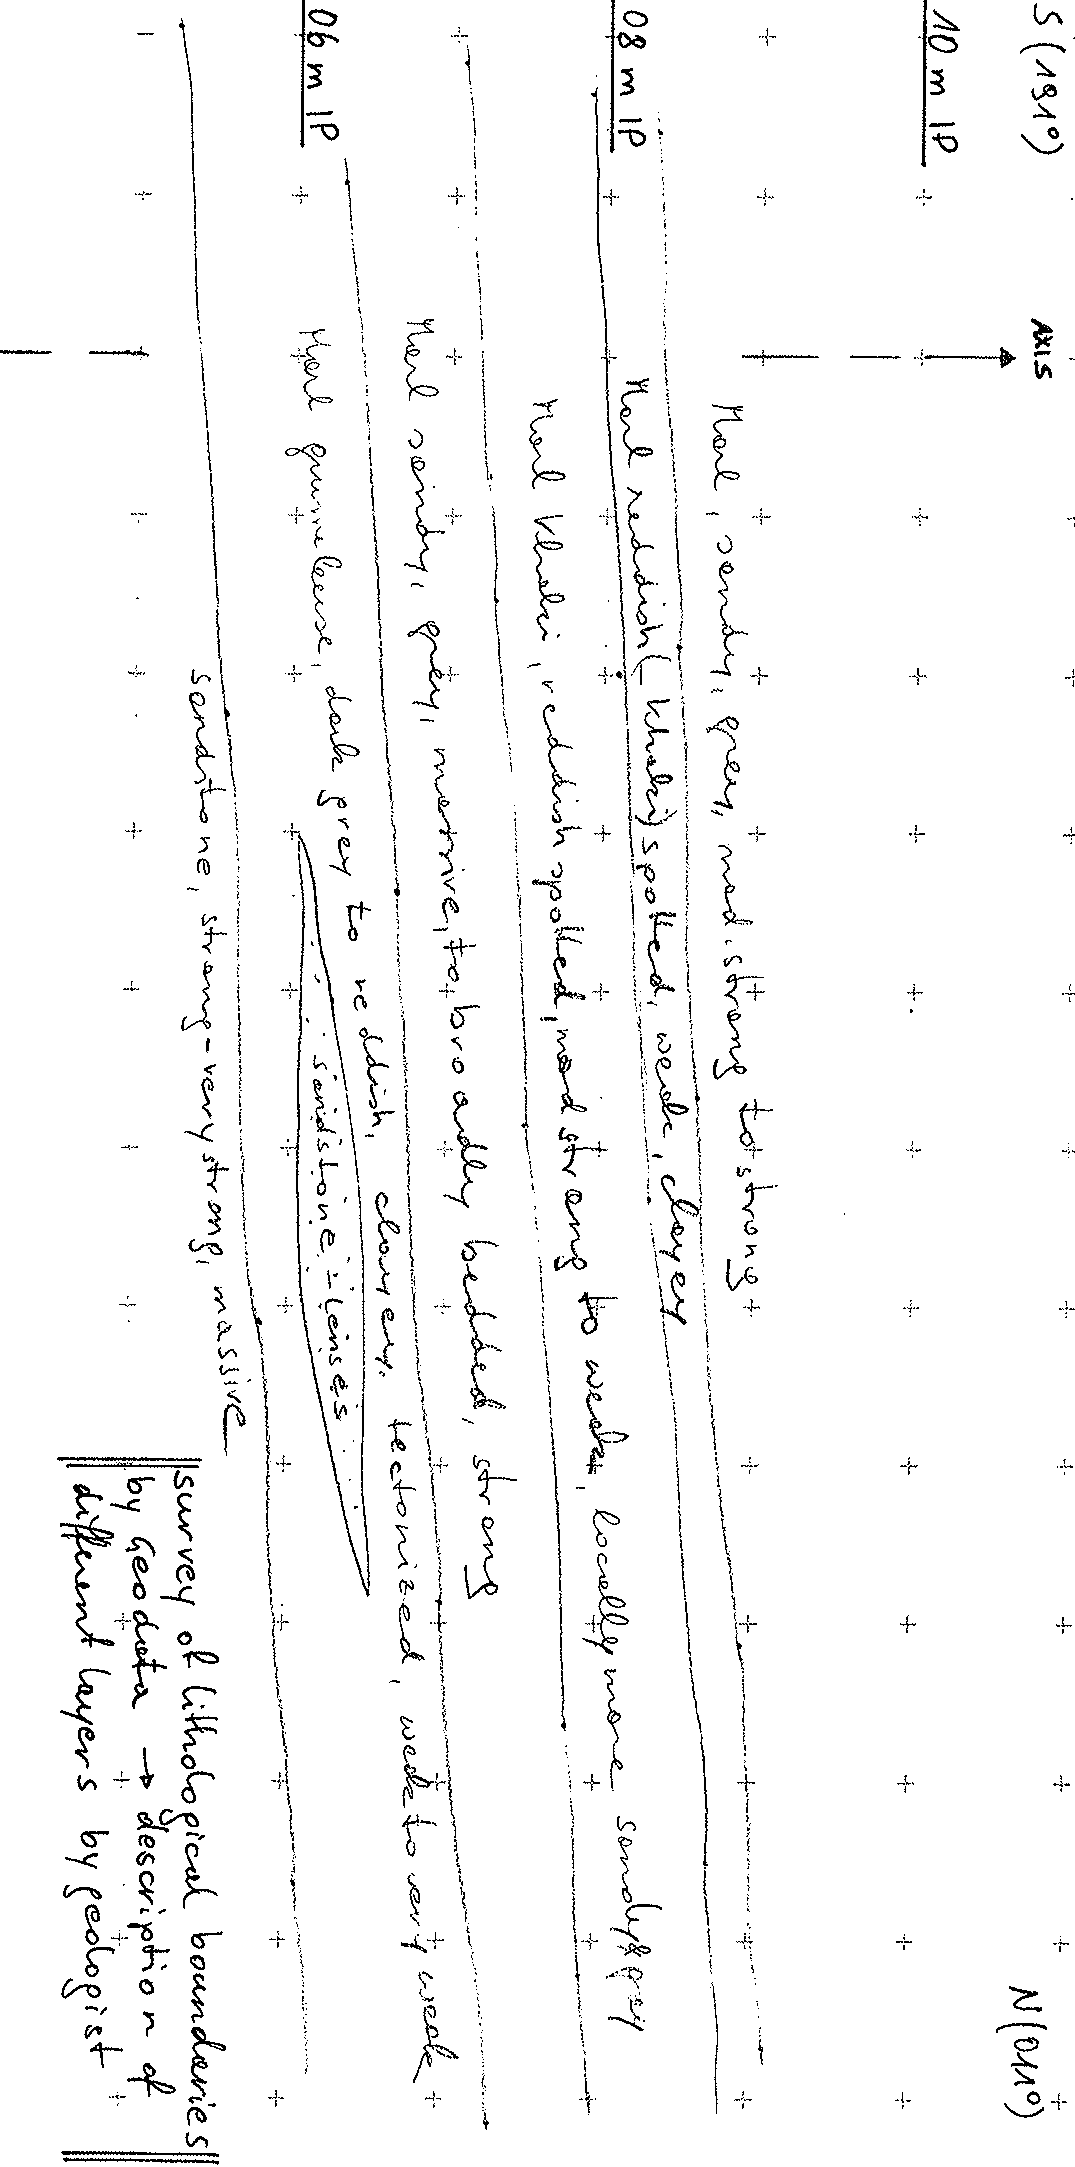 S (191°)
N (011°)
AXIS
10 m IP
Marl, sandy, grey, mod. strong to strong
08 m IP
Marl reddish (- khaki) spotted, weak, clayey
Marl khaki, reddish spotted, mod strong to weak, locally more sandy & grey
Marl sandy, grey, massive, to broadly bedded, strong
06 m IP
Marl grumeleuse, dark grey to reddish, clayey, tectonized, weak to very weak
sandstone - lenses
sandstone, strong - very strong, massive
survey of lithological boundaries
by Geodata → description of
different layers by geologist